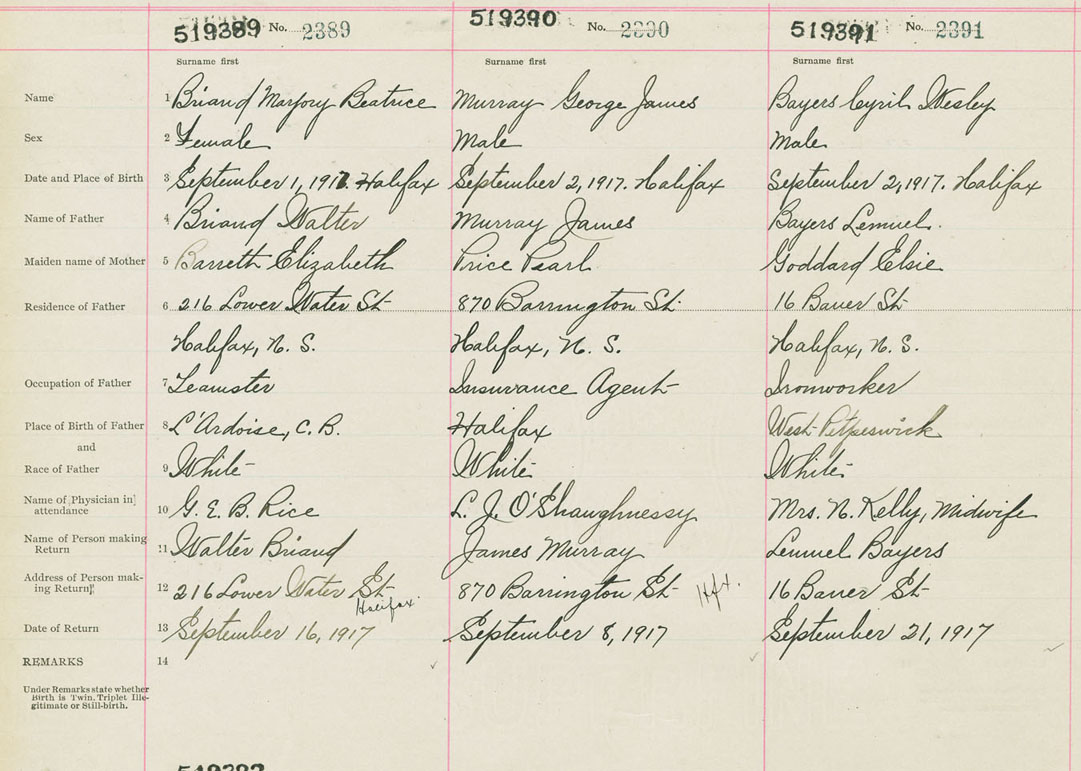 519389 No. 2389 519390 No. 2390 519391 No. 2391
Surname first Surname first Surname first
Name 1 Briand Marjory Beatrice Murray George James Bayers Cyril Wesley
Sex 2 Female Male Male
Date and Place of Birth 3 September 1, 1917. Halifax September 2, 1917. Halifax September 2, 1917. Halifax
Name of Father 4 Briand Walter Murray James Bayers Lemuel.
Maiden name of Mother 5 Barrett Elizabeth Price Pearl Goddard Elsie
Residence of Father 6 216 Lower Water St 870 Barrington St. 16 Bauer St
Halifax, N. S. Halifax, N. S. Halifax, N. S.
Occupation of Father 7 Teamster Insurance Agent Ironworker
Place of Birth of Father 8 L'Ardoise, C. B. Halifax West Petpeswick
and
Race of Father 9 White White White
Name of Physician in
attendance 10 G. E. B. Rice L. J. O'Shaughnessy Mrs. N. Kelly, Midwife
Name of Person making
Return 11 Walter Briand James Murray Lemuel Bayers
Address of Person mak-
ing Return 12 216 Lower Water St 870 Barrington St Hfx. 16 Bauer St
Halifax.
Date of Return 13 September 16, 1917 September 8, 1917 September 21, 1917
REMARKS 14
Under Remarks state whether
Birth is Twin, Triplet Ille-
gitimate or Still-birth.